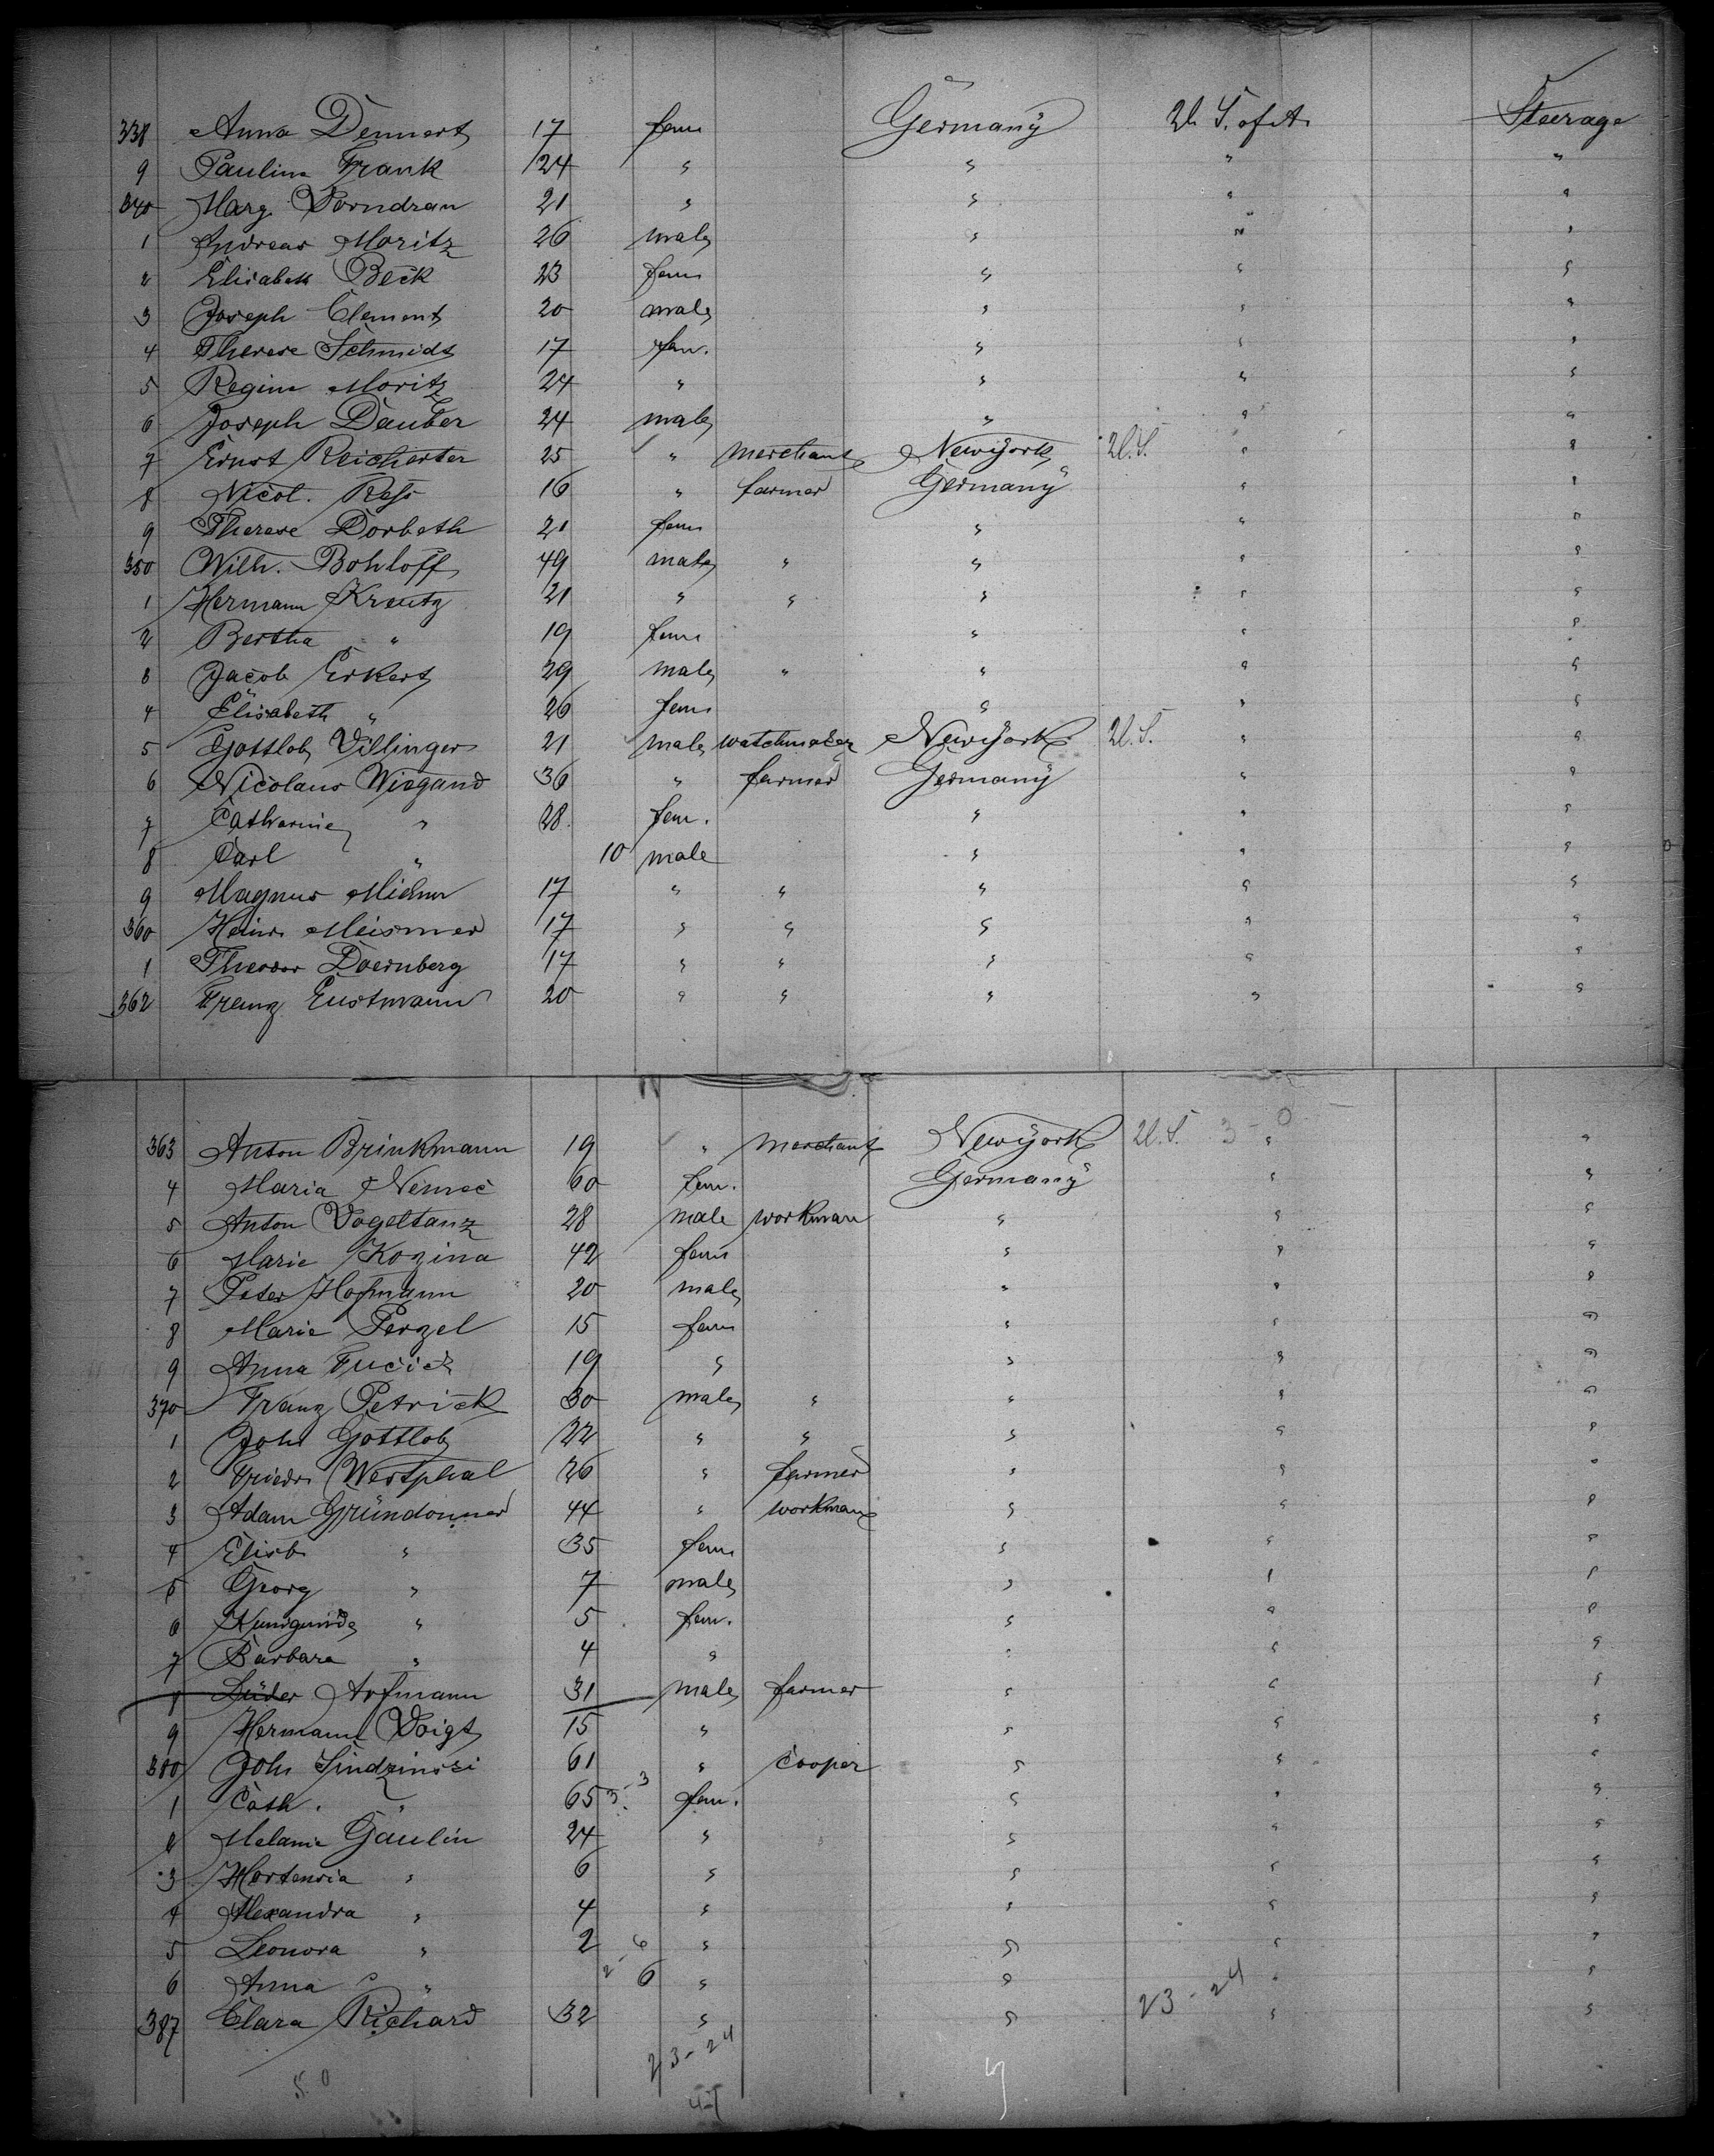 338 Anna Dennert 17 fem Germany U. S. of A. Steerage
9 Pauline Frank 24 " " " "
340 Marg. Vorndran 21 " " " "
1 Andreas Moritz 26 male " " "
2 Elisabeth Beck 23 fem " " "
3 Joseph Clement 20 male " " "
4 Therese Schmidt 17 fem. " " "
5 Regine Moritz 24 " " " "
6 Joseph Dauber 24 male " " "
7 Ernst Reicherter 25 " merchant New York U.S. " "
8 Nicol. Ress 16 " farmer Germany " "
9 Therese Dorbeth 21 fem " " "
350 Wilh. Bohloff 49 male " " " "
1 Hermann Kreutz 21 " " " " "
2 Bertha " 19 fem " " "
3 Jacob Erkert 29 male " " " "
4 Elisabeth " 26 fem " " "
5 Gottlob Villinger 21 male watchmaker New York U.S. " "
6 Nicolaus Wiegand 36 " farmer Germany " "
7 Catharine " 28 fem. " " "
8 Carl " 10 male " " "
9 Magnus 17 " " " " "
360 Heinr. Meismer 17 " " " " "
1 Theodor Doernberg 17 " " " " "
362 Franz Eustmann 20 " " " " "
363 Anton Brinkmann 19 " merchant New York U.S. 3-0 " "
4 Maria Nemec 60 fem. Germany " "
5 Anton Vogeltanz 28 male workman " " "
6 Marie Kozina 42 fem " " "
7 Peter Hofmann 20 male " " "
8 Marie Perzel 15 fem " " "
9 Anna Fucick 19 " " " "
370 Franz Petrick 30 male " " " "
1 Joh. Gottlob 22 " " " " "
2 Friedr. Westphal 26 " farmer " " "
3 Adam Gründonner 44 " workman " " "
4 Elisb. " 35 fem " " "
5 Georg " 7 male " " "
6 Kunigunde " 5 fem. " " "
7 Barbara " 4 " " " "
8 Lüder Hofmann 31 male farmer " " "
9 Hermann Voigt 15 " " " "
380 Joh. Sindzinski 61 " cooper " " "
1 Cath. " 65 3-3 fem. " " "
2 Melanie Gaulin 24 " " " "
3 Hortensia " 6 " " " "
4 Alexandra " 4 " " " "
5 Leonora " 2 " " " "
6 Anna " 2-6 6 " " " "
387 Clara Richard 32 " " 23-24 " "
23-24
50
47